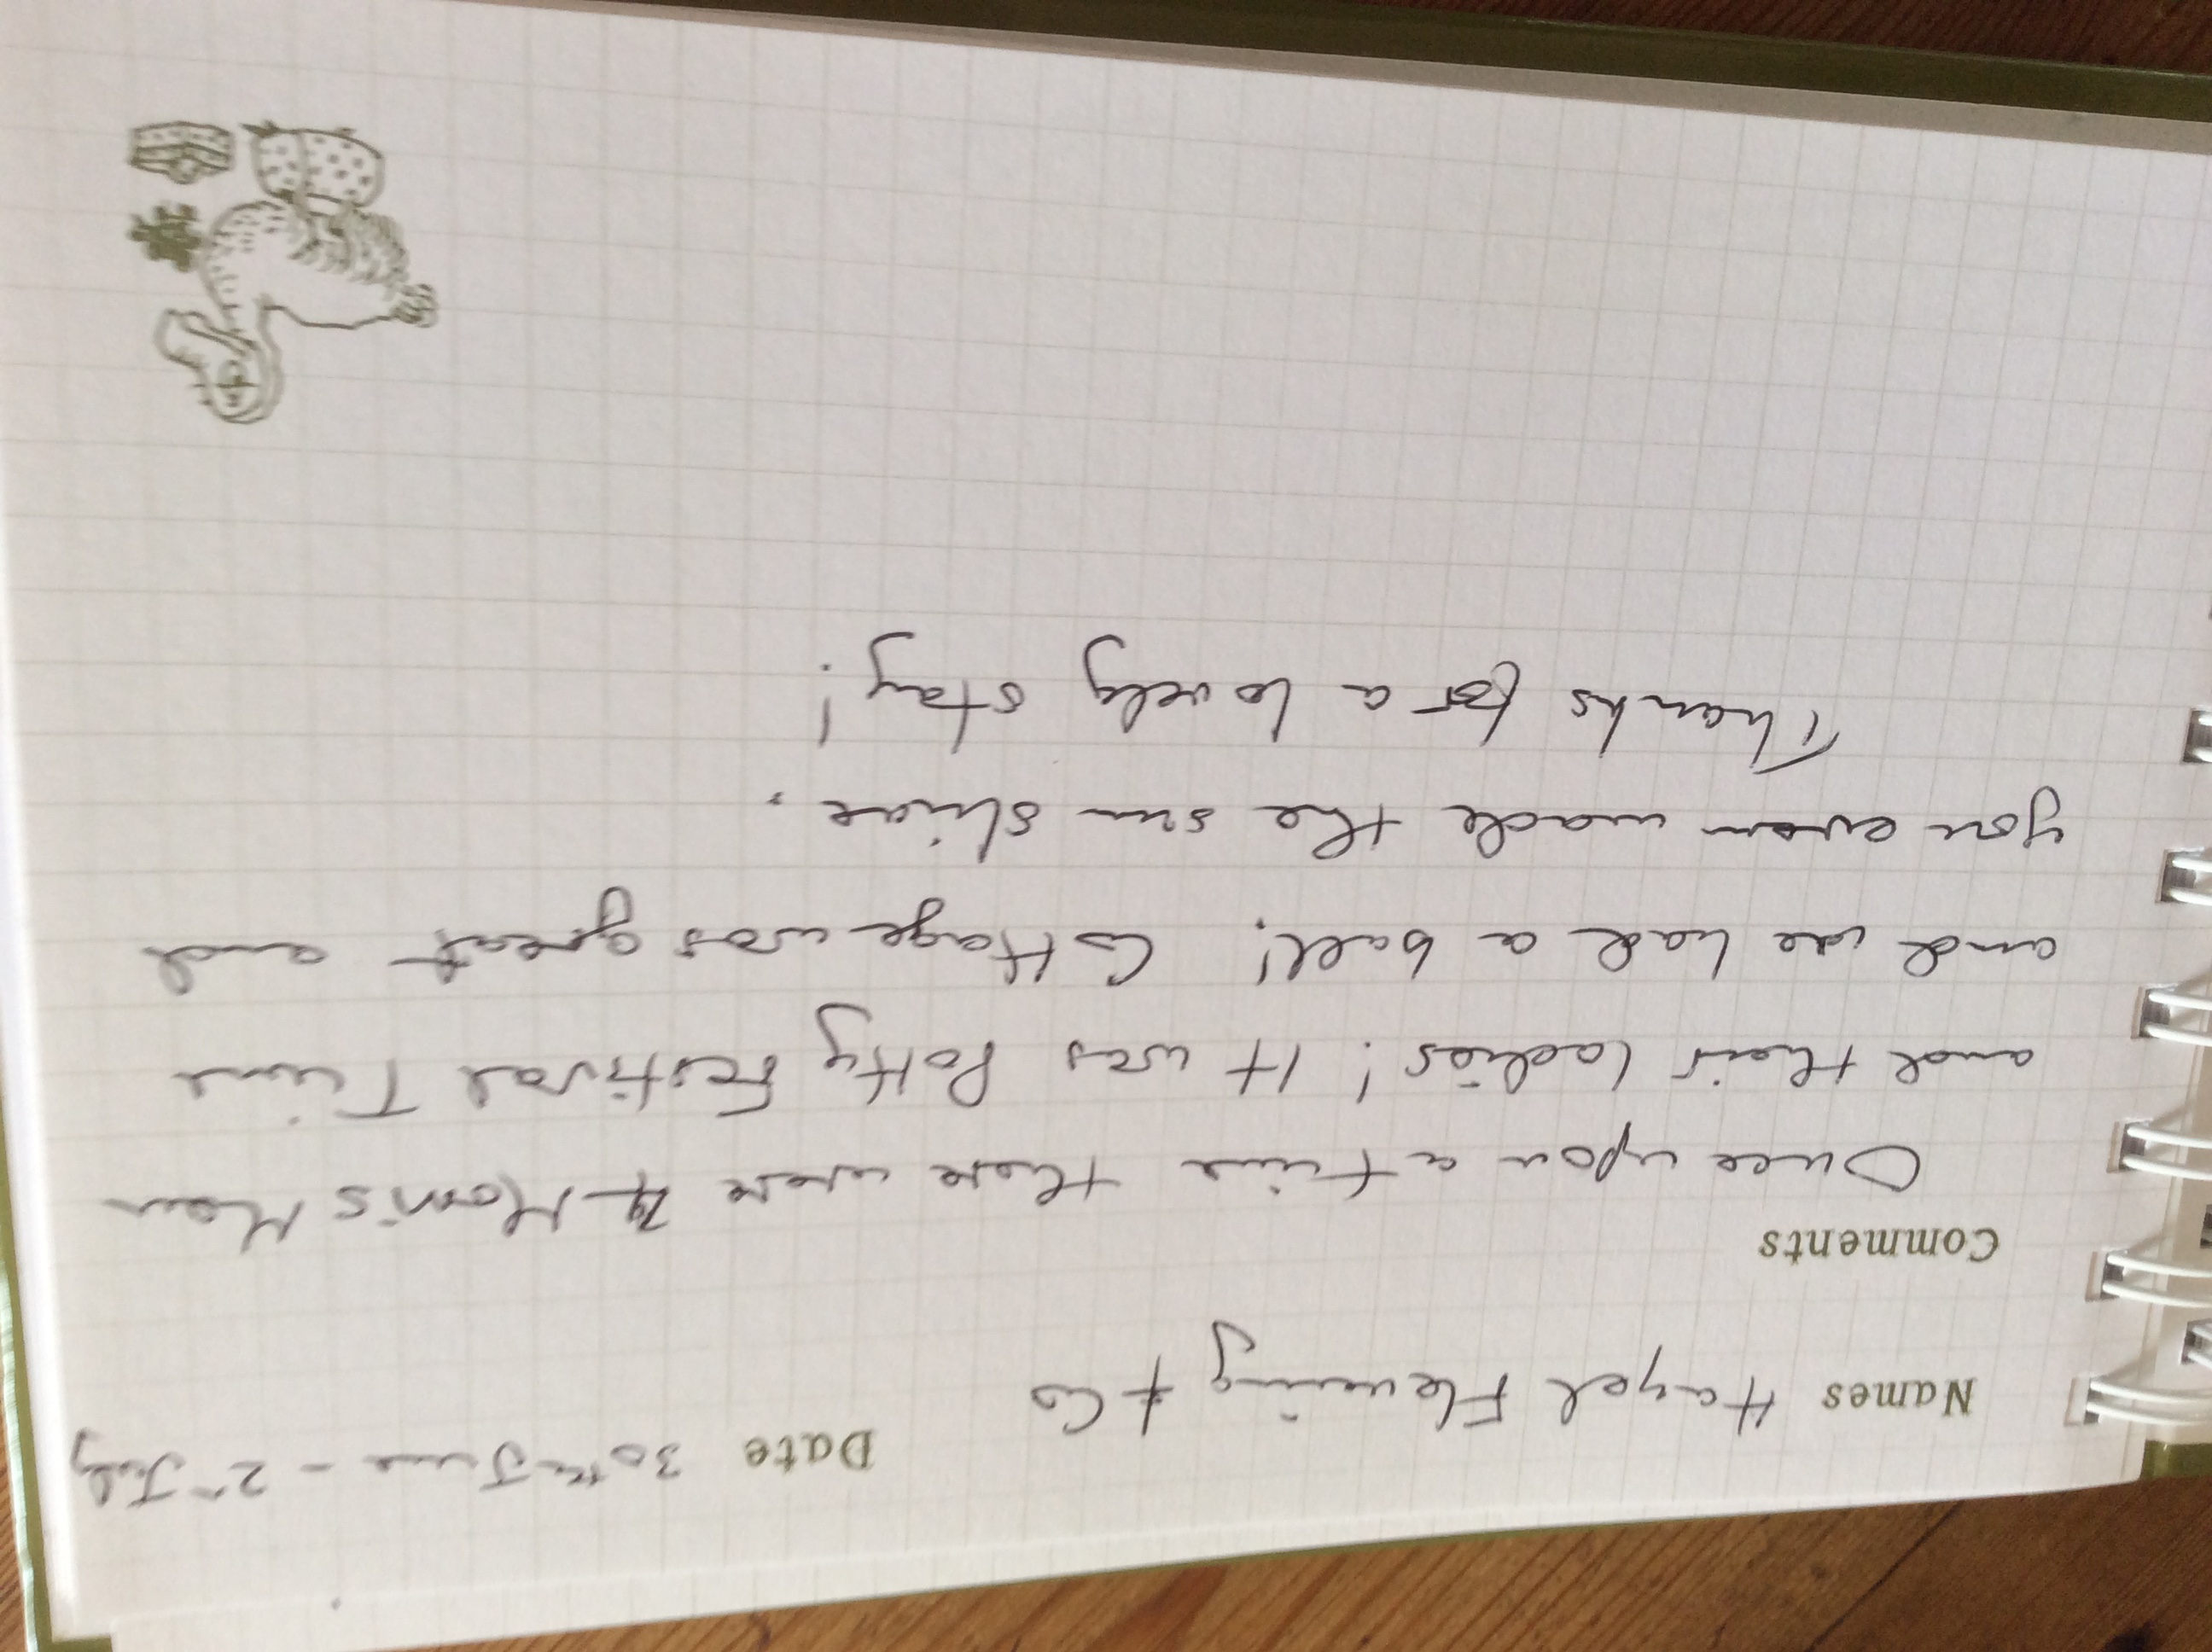 Names Hazel Fleming + Co
Date 30th June - 2nd July
Comments
Once upon a time there were 4 Morris Men
and their ladies! It was Potty Festival Time
and we had a ball! Cottage was great and
you even made the sun shine.
Thanks for a lovely stay!